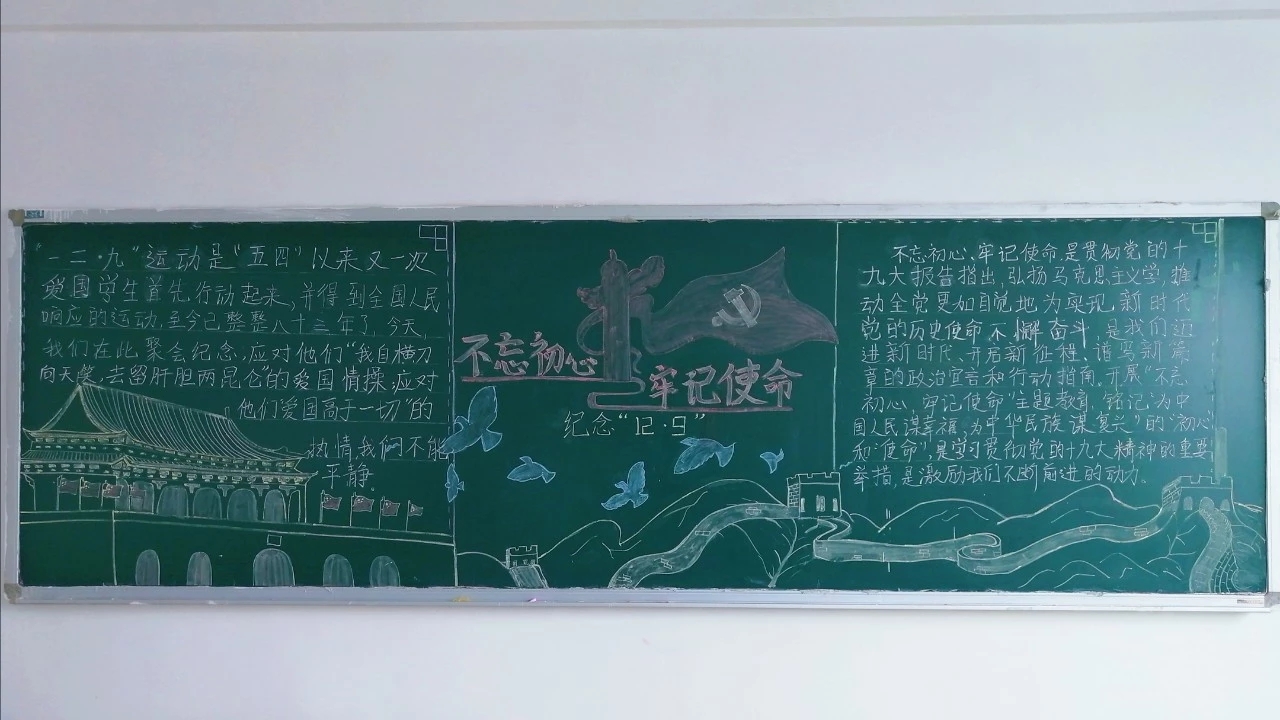 "一二·九"运动是"五四"以来又一次
爱国学生首先行动起来,并得到全国人民
响应的运动,至今已整整八十三年了,今天,
我们在此聚会纪念,应对他们"我自横刀
向天笑,去留肝胆两昆仑"的爱国情操,应对
他们"爱国高于一切"的
热情,我们不能
平静.
不忘初心
牢记使命
纪念"12·9"
不忘初心、牢记使命,是贯彻党的十
九大报告指出,弘扬马克思主义学,推
动全党更加自觉地为实现新时代
党的历史使命不懈奋斗,是我们迈
进新时代、开启新征程、谱写新篇
章的政治宣言和行动指南.开展"不忘
初心,牢记使命"主题教育,铭记"为中
国人民谋幸福,为中华民族谋复兴"的"初心"
和"使命",是学习贯彻党的十九大精神的重要
举措,是激励我们不断前进的动力。